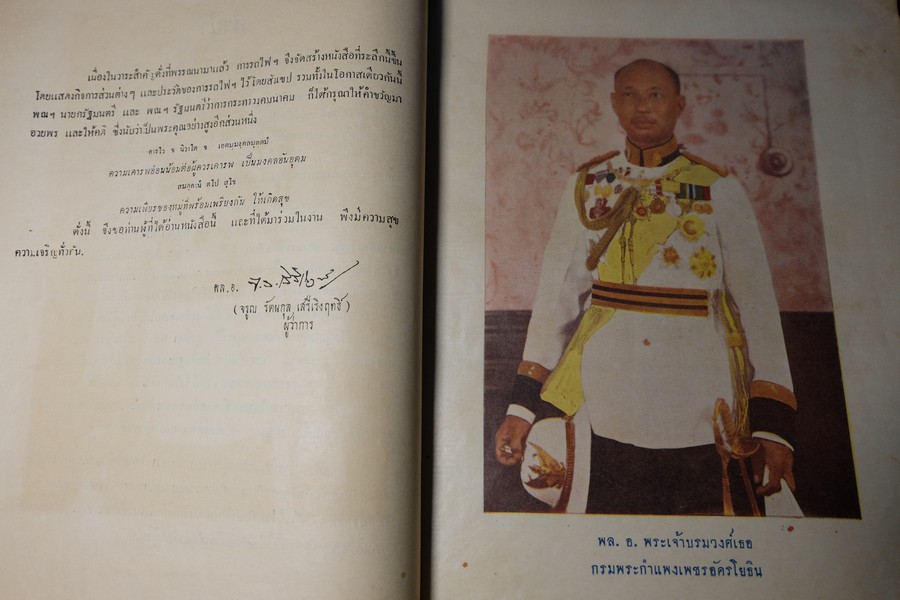 เนื่องในวาระสำคัญดั่งที่พรรณนามาแล้ว การรถไฟฯ จึงจัดสร้างหนังสือที่ระลึกนี้ขึ้น
โดยแสดงกิจการส่วนต่างๆ และประวัติของการรถไฟฯ ไว้โดยสังเขป รวมทั้งในโอกาสเดียวกันนี้
พณฯ นายกรัฐมนตรี และ พณฯ รัฐมนตรีว่าการกระทรวงคมนาคม ก็ได้กรุณาให้คำขวัญมา
อวยพร และให้คติ ซึ่งนับว่าเป็นพระคุณอย่างสูงอีกส่วนหนึ่ง
คารโว จ นิวาโต จ เอตมมงคลมุตตมํ
ความเคารพอ่อนน้อมต่อผู้ควรเคารพ เป็นมงคลอันอุดม
สมคคานํ ตโป สุโข
ความเพียรของหมู่ที่พร้อมเพรียงกัน ให้เกิดสุข
ดั่งนี้ จึงขอท่านผู้ที่ได้อ่านหนังสือนี้ และที่ได้มาร่วมในงาน พึงมีความสุข
ความเจริญทั่วกัน.
พล.อ.
(จรูญ รัตนกุล เสรีเริงฤทธิ์)
ผู้ว่าการ
พล. อ. พระเจ้าบรมวงศ์เธอ
กรมพระกำแพงเพชรอัครโยธิน